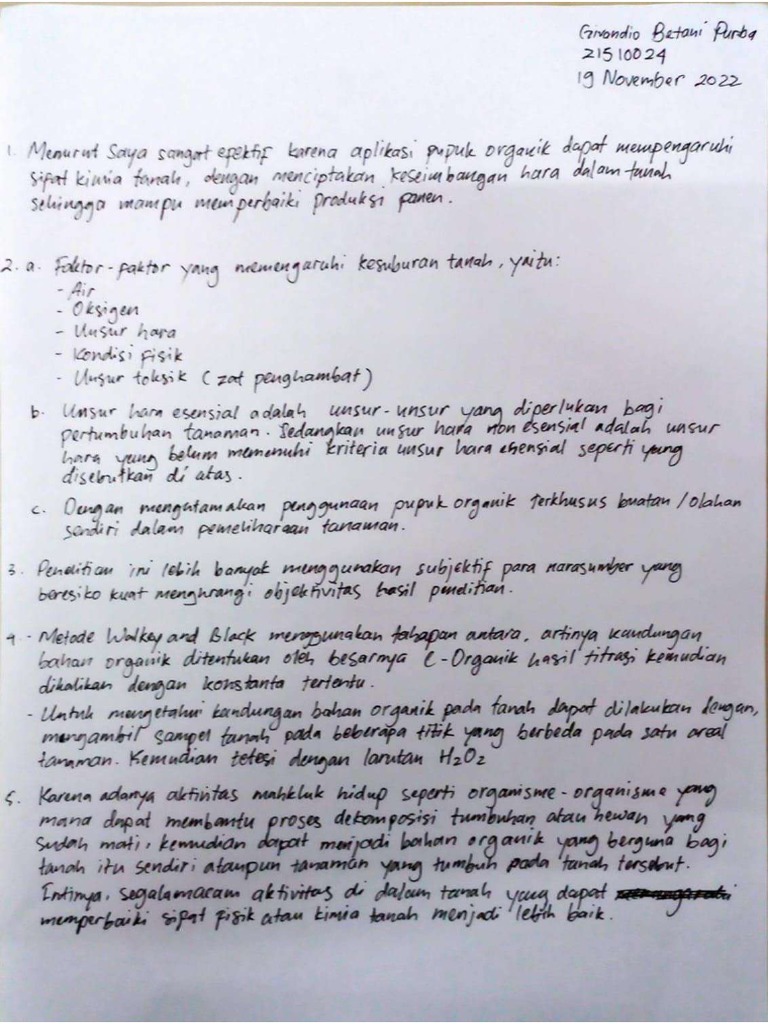 Givondio Betani Purba
21510024
19 November 2022
1. Menurut Saya sangat efektif karena aplikasi pupuk organik dapat mempengaruhi
sifat kimia tanah, dengan menciptakan keseimbangan hara dalam tanah
sehingga mampu memperbaiki produksi panen.
2. a. Faktor-faktor yang memengaruhi kesuburan tanah, yaitu:
- Air
- Oksigen
- Unsur hara
- Kondisi fisik
- Unsur toksik (zat penghambat)
b. Unsur hara esensial adalah unsur-unsur yang diperlukan bagi
pertumbuhan tanaman. Sedangkan unsur hara non esensial adalah unsur
hara yang belum memenuhi kriteria unsur hara esensial seperti yang
disebutkan di atas.
c. Dengan mengutamakan penggunaan pupuk organik terkhusus buatan/olahan
sendiri dalam pemeliharaan tanaman.
3. Penelitian ini lebih banyak menggunakan subjektif para narasumber yang
beresiko kuat mengurangi objektivitas hasil penelitian.
4. - Metode Walkey and Black menggunakan tahapan antara, artinya kandungan
bahan organik ditentukan oleh besarnya C-Organik hasil titrasi kemudian
dikalikan dengan konstanta tertentu.
- Untuk mengetahui kandungan bahan organik pada tanah dapat dilakukan dengan,
mengambil sampel tanah pada beberapa titik yang berbeda pada satu areal
tanaman. Kemudian tetesi dengan larutan H₂O₂
5. Karena adanya aktivitas mahkluk hidup seperti organisme-organisme yang
mana dapat membantu proses dekomposisi tumbuhan atau hewan yang
sudah mati, kemudian dapat menjadi bahan organik yang berguna bagi
tanah itu sendiri ataupun tanaman yang tumbuh pada tanah tersebut.
Intinya, segala macam aktivitas di dalam tanah yang dapat
memperbaiki sifat fisik atau kimia tanah menjadi lebih baik.